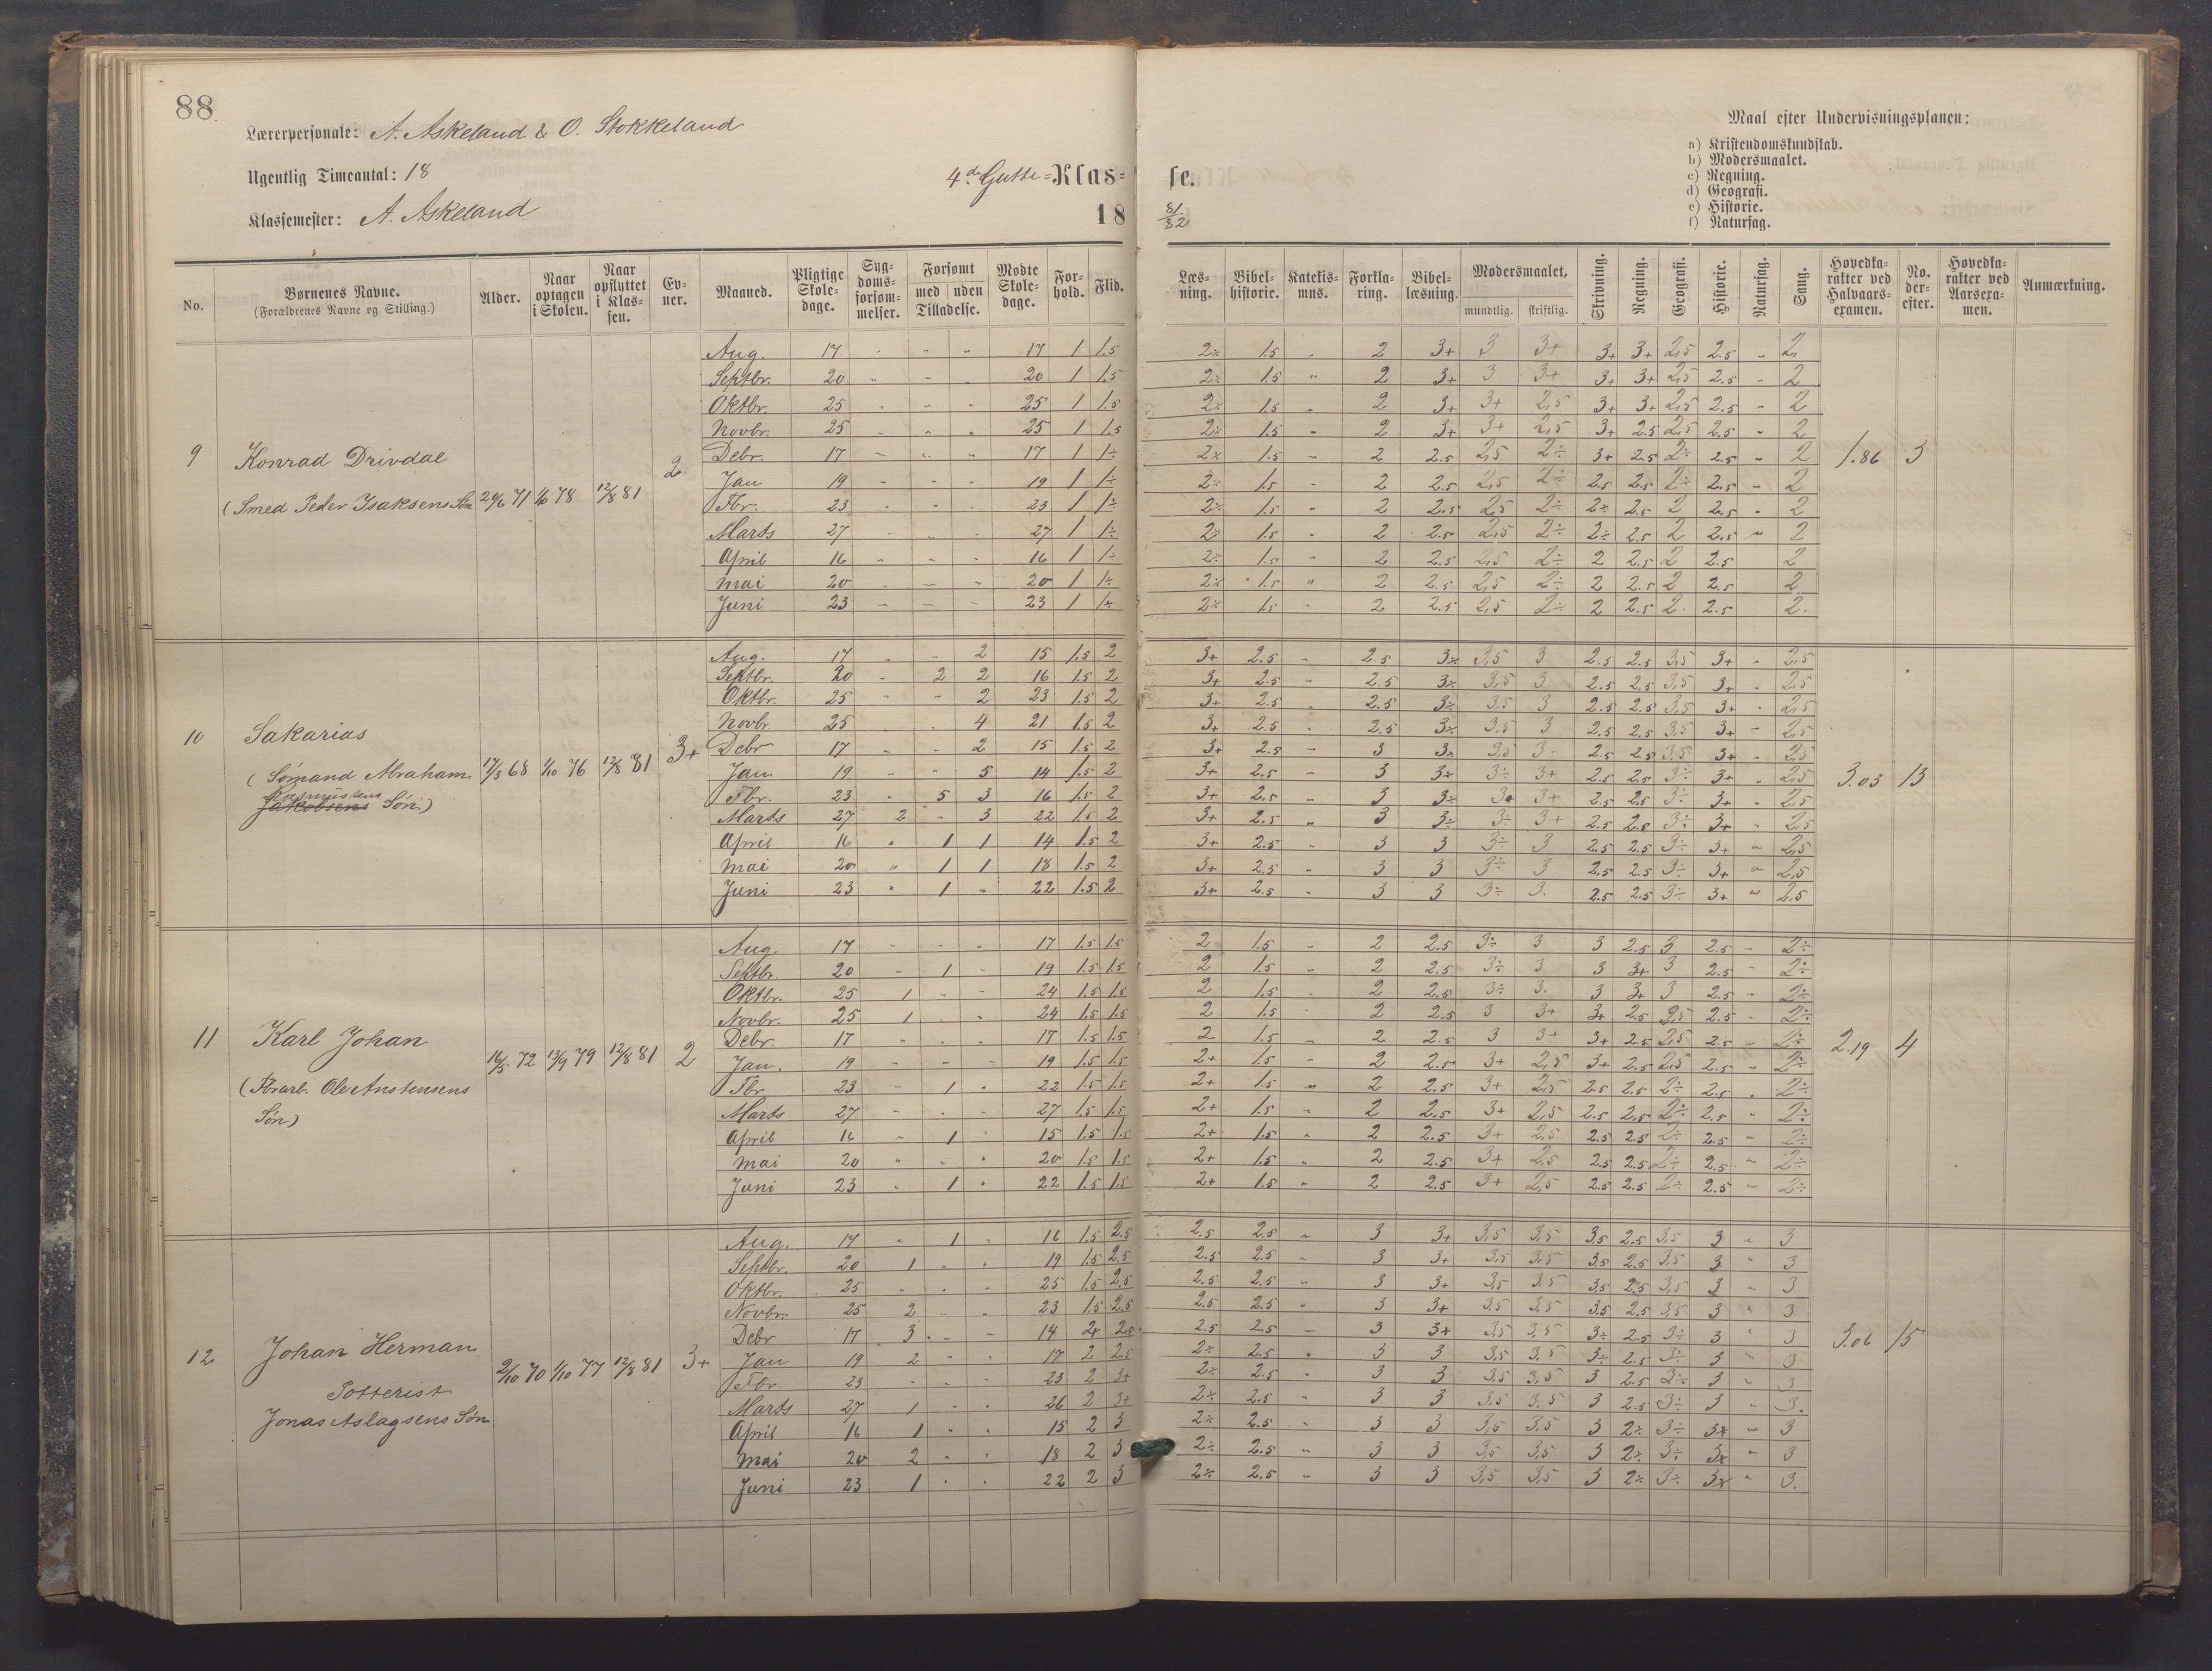 88
Lærerpersonale: A. Askeland & O. Stokkeland
Ugentlig Timeantal: 18
4de Gutte=Klas=se.
Klassemester: A. Askeland
18 81/82
Maal efter Undervisningsplanen:
a) Kristendomskundskab.
b) Modersmaalet.
c) Regning.
d) Geografi.
e) Historie.
f) Naturfag.
No. | Børnenes Navne. (Forældrenes Navne og Stilling.) | Alder. | Naar optagen i Skolen. | Naar opflyttet i Klassen. | Evner. | Maaned. | Pligtige Skoledage. | Sygdomsforsømmelser. | Forsømt med Tilladelse. | Forsømt uden Tilladelse. | Mødte Skoledage. | Forhold. | Flid. | Læsning. | Bibelhistorie. | Katekismus. | Forklaring. | Bibellæsning. | Modersmaalet, mundtlig. | skriftlig. | Skrivning. | Regning. | Geografi. | Historie. | Naturfag. | Sang. | Hovedkarakter ved Halvaarsexamen. | No. derefter. | Hovedkarakter ved Aarsexamen. | Anmærkning.
9 Konrad Drivdal
(Smed Peder Isaksens Søn 78 12/8 81 2 1.86
Aug. 17 " " " 17 1 1.5 2÷ 1.5 " 2 3+ 3 3+ 3+ 3+ 2,5 2.5 " 2
Septbr. 20 " " " 20 1 1.5 2÷ 1.5 " 2 3+ 3 3+ 3+ 3+ 2,5 2.5 " 2
Oktbr. 25 " " " 25 1 1.5 2÷ 1.5 " 2 3+ 3+ 2,5 3+ 3+ 2,5 2.5 " 2
Novbr. 25 " " " 25 1 1.5 2÷ 1.5 " 2 3+ 3+ 2,5 3+ 2.5 2,5 2.5 " 2
Debr. 17 " " " 17 1 1÷ 2÷ 1.5 " 2 2.5 2,5 2÷ 3+ 2.5 2÷ 2.5 " 2
Jan 19 " " " 19 1 1÷ 2÷ 1.5 " 2 2.5 2,5 2÷ 2.5 2.5 2÷ 2.5 " 2
Fbr. 23 " " " 23 1 1÷ 2÷ 1.5 " 2 2.5 2,5 2÷ 2÷ 2.5 2 2.5 " 2
Marts 27 " " " 27 1 1÷ 2÷ 1.5 " 2 2.5 2,5 2÷ 2÷ 2.5 2 2.5 " 2
April 16 " " " 16 1 1÷ 2÷ 1.5 " 2 2.5 2,5 2÷ 2 2.5 2 2.5 2
Mai 20 " " " 20 1 1÷ 2÷ 1.5 " 2 2.5 2,5 2÷ 2 2.5 2 2.5 2
Juni 23 " " " 23 1 1÷ 2÷ 1.5 " 2 2.5 2,5 2÷ 2 2.5 2 2.5 2.
10 Sakarias
(Sømand Abraham 17/3 68 1/10 76 12/8 81 3+ 3.03 13
Rasmussens
Jakobsens Søn.)
Aug. 17 " " 2 15 1.5 2 3+ 2.5 " 2.5 3÷ 3,5 3 2.5 2.5 3,5 3+ " 2,5
Septbr. 20 " 2 2 16 1.5 2 3+ 2.5 " 2.5 3÷ 3,5 3 2.5 2.5 3,5 3+ " 2,5
Oktbr. 25 " " 2 23 1.5 2 3+ 2.5 " 2.5 3÷ 3,5 3 2.5 2.5 3,5 3+ " 2,5
Novbr. 25 " " 4 21 1.5 2 3+ 2.5 " 2.5 3÷ 3,5 3 2.5 2.5 3,5 3+ " 2,5
Debr 17 " " 2 15 1.5 2 3+ 2.5 " 3 3÷ 3,5 3 2.5 2.5 3,5 3+ " 2,5
Jan 19 " " 5 14 1.5 2 3+ 2.5 " 3 3÷ 3÷ 3+ 2.5 2.5 3÷ 3+ " 2,5
Fbr. 23 " 5 3 16 1.5 2 3+ 2.5 " 3 3÷ 3+ 2.5 2.5 3÷ 3+ " 2,5
Marts 27 2 " 3 22 1.5 2 3+ 2.5 " 3 3÷ 3÷ 3+ 2.5 2.5 3÷ 3+ " 2,5
April 16 " 1 1 14 1.5 2 3+ 2.5 " 3 3 3÷ 3 2.5 2.5 3÷ 3+ " 2,5
Mai 20 " 1 1 18 1.5 2 3+ 2.5 " 3 3 3÷ 3 2.5 2.5 3÷ 3+ " 2,5
Juni 23 " 1 " 22 1.5 2 3+ 2.5 " 3 3 3÷ 3. 2.5 2.5 3÷ 3+ " 2,5
11 Karl Johan
(Fbrarb. Ole Anstensens 16/5 72 13/9 79 12/8 81 2 2.19 4
Søn)
Aug. 17 " " " 17 1.5 1.5 2 1.5 " 2 2.5 3÷ 3 3 2.5 3 2.5 " 2÷
Septbr. 20 " 1 " 19 1.5 1.5 2 1.5 " 2 2.5 3÷ 3 3 3+ 3 2.5 " 2÷
Oktbr. 25 1 " " 24 1.5 1.5 2 1.5 " 2 2.5 3÷ 3. 3 3+ 3 2.5 " 2÷
Novbr. 25 1 " " 24 1.5 1.5 2 1.5 " 2 2.5 3 3+ 3+ 2.5 2,5 2.5 " 2÷
Debr. 17 " " " 17 1.5 1.5 2 1.5 " 2 2.5 3 3+ 3+ 2.5 2,5 2.5 " 2÷
Jan. 19 " " " 19 1.5 1.5 2+ 1.5 " 2 2.5 3+ 2,5 3+ 2.5 2,5 2.5 " 2÷
Fbr 23 " 1 " 22 1.5 1.5 2+ 1.5 " 2 2.5 3+ 2,5 2.5 2.5 2÷ 2.5 " 2÷
Marts 27 " " " 27 1.5 1.5 2+ 1.5 " 2 2.5 3+ 2,5 2.5 2.5 2÷ 2.5 " 2÷
April 16 " 1 " 15 1.5 1.5 2+ 1.5 " 2 2.5 3+ 2,5 2.5 2.5 2÷ 2.5 " 2÷
Mai 20 " " " 20 1.5 1.5 2+ 1.5 " 2 2.5 3+ 2,5 2.5 2.5 2÷ 2.5 " 2÷
Juni 23 " 1 " 22 1.5 1.5 2+ 1.5 " 2 2.5 3+ 2,5 2.5 2.5 2÷ 2.5 " 2÷
12 Johan Herman
Potterist 2/10 70 1/10 77 12/8 81 3+ 3.06 15
Jonas Aslagsens Søn
Aug. 17 " 1 " 16 1.5 2.5 2.5 2.5 " 3 3+ 3,5 3,5 3.5 2.5 3,5 3 " 3
Septbr. 20 1 " " 19 1.5 2.5 2.5 2.5 " 3 3+ 3,5 3,5 3.5 2.5 3,5 3 " 3
Oktbr. 25 " " " 25 1.5 2.5 2.5 2.5 " 3 3+ 3,5 3,5 3.5 2.5 3,5 3 " 3
Novbr. 25 2 " " 23 1.5 2.5 2.5 2.5 " 3 3+ 3,5 3,5 3.5 2.5 3,5 3 " 3
Debr 17 3 " " 14 2+ 2.5 2.5 2.5 " 3 3+ 3,5 3,5 3÷ 2.5 3÷ 3 " 3
Jan 19 2 " " 17 2 2.5 2÷ 2.5 " 3 3 3,5 3,5 3÷ 2.5 3÷ 3 " 3
Fbr. 23 " " " 23 2 3+ 2÷ 2.5 " 3 3 3,5 3,5 3 2.5 3÷ 3 " 3
Marts 27 1 " " 26 2 3+ 2÷ 2.5 " 3 3 3,5 3,5 3 2.5 3÷ 3 " 3.
April 16 1 " " 15 2 3 2÷ 2.5 " 3 3 3,5 3,5 3 2÷ 3÷ 3÷ " 3
Mai 20 2 " " 18 2 3 2÷ 2.5 " 3 3 3,5 3,5 3 2÷ 3÷ 3÷ " 3
Juni 23 1 " " 22 2 3 2÷ 2.5 " 3 3 3,5 3,5 3 2÷ 3÷ 3÷ " 3.